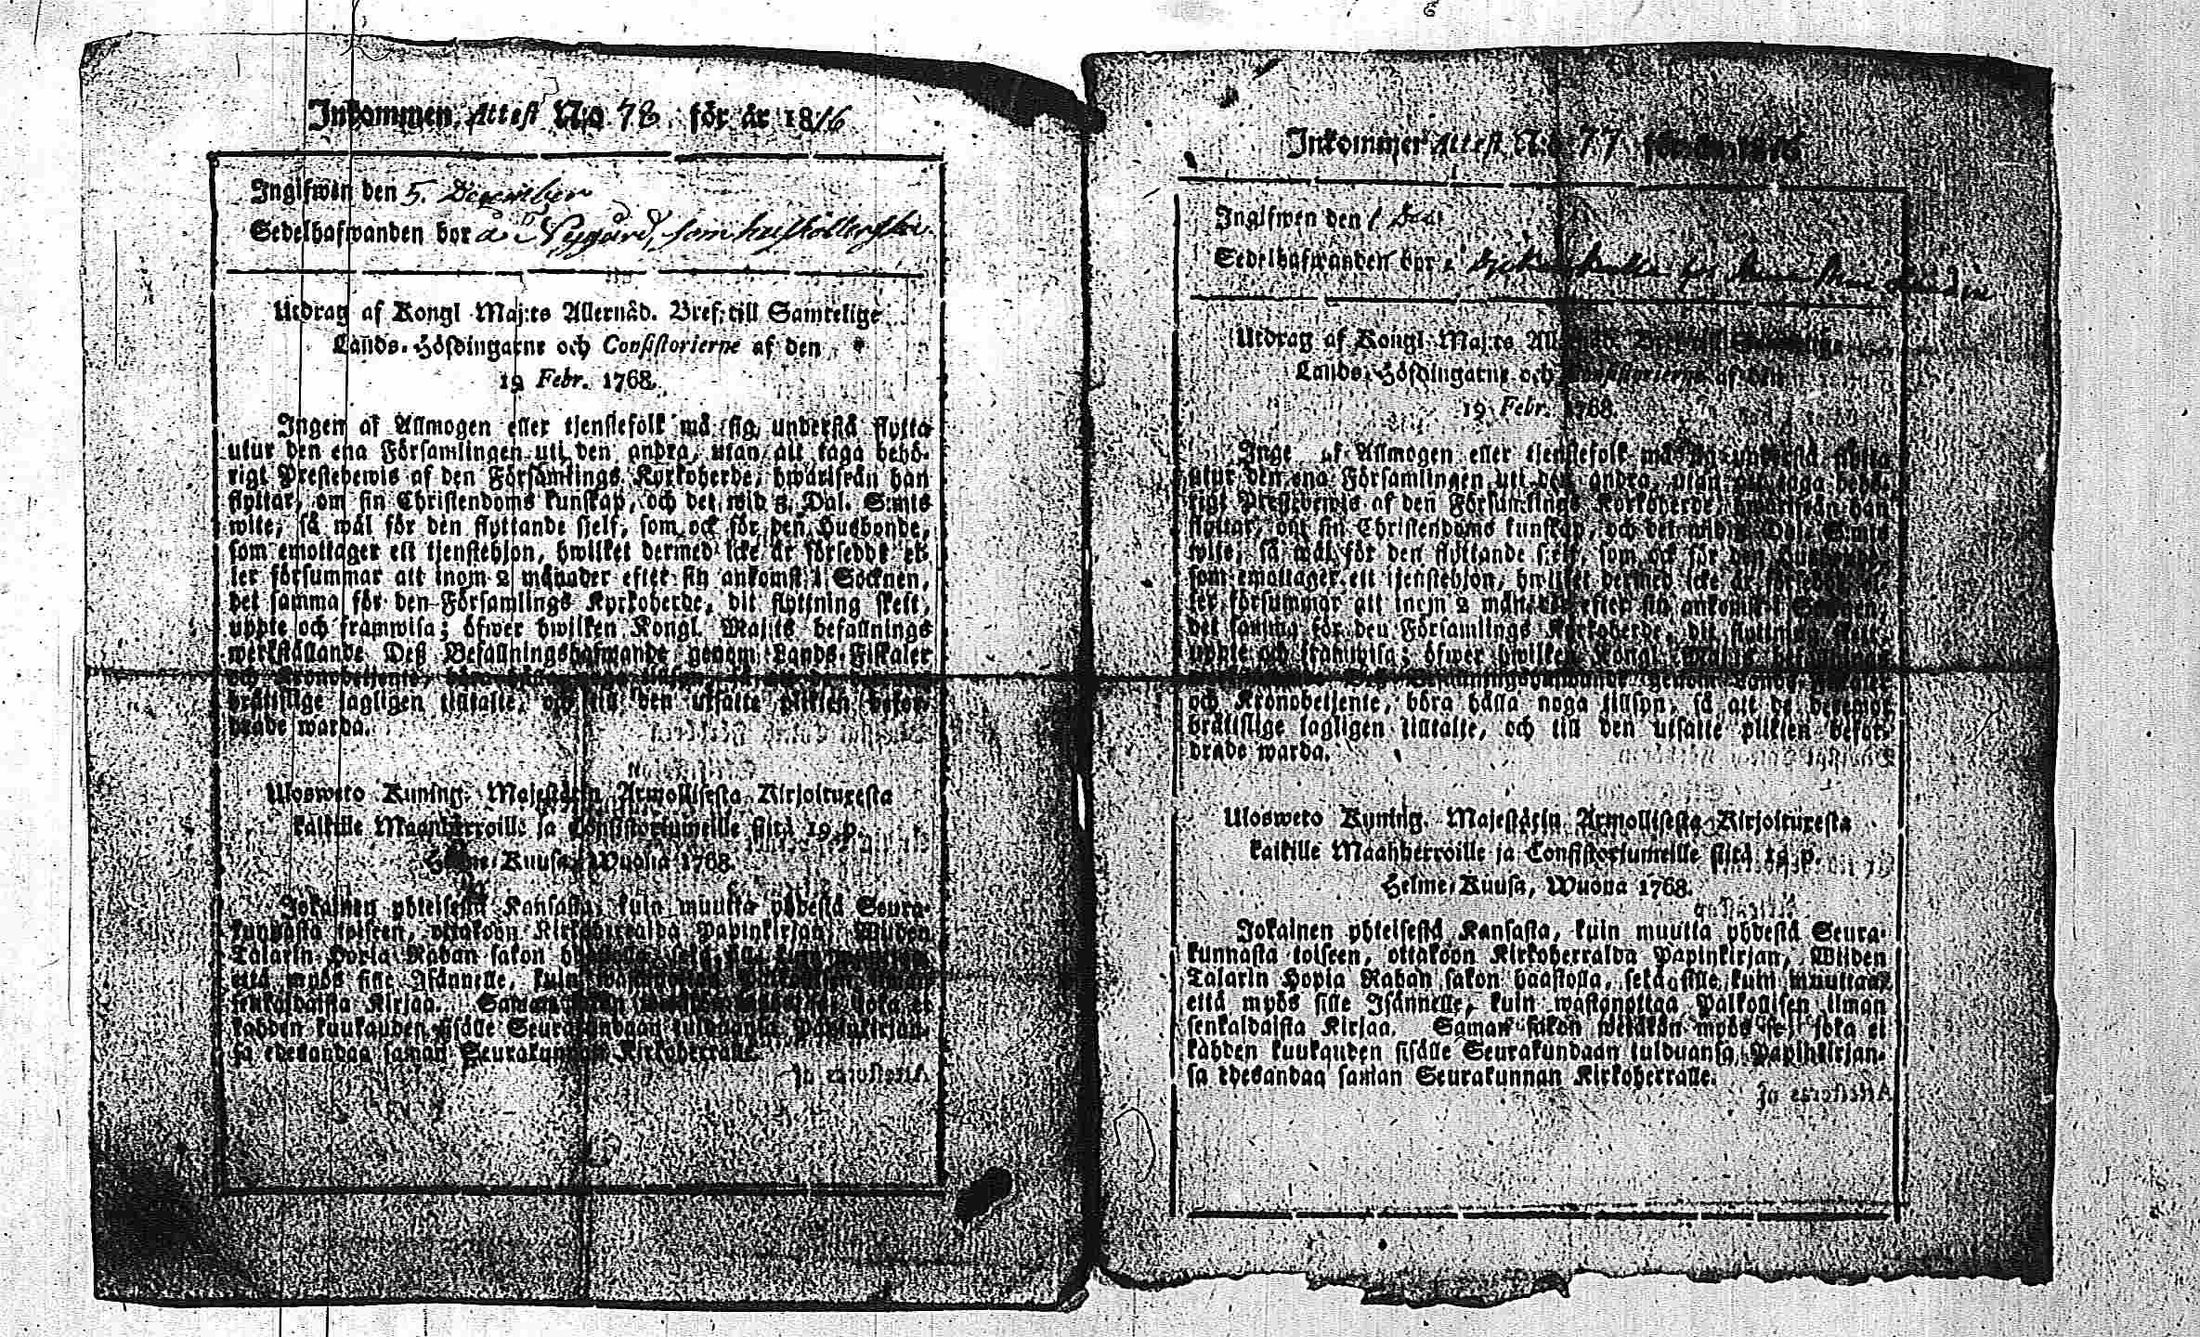 Inkommen Attest N:o 78 för år 1816
Ingifwen den 5. December
Sedelhafwanden bor å Nygård, som hushållerska.
Utdrag af Kongl. Maj:ts Allernåd. Bref till Samtelige
Lands-Höfdingarne och Consistorierne af den
19 Febr. 1768.
Ingen af Allmogen eller tjenstefolk må sig understå flytta
utur den ena Församlingen uti den andra, utan att taga behö-
rigt Prestebewis af den Församlings Kyrkoherde, hwarifrån han
flyttar, om sin Christendoms kunskap, och det wid 3. Dal. S:mts
wite, så wäl för den flyttande sjelf, som ock för den Husbonde,
som emottager ett tjenstehjon, hwilket dermed icke är försedt el-
ler försummar att inom 2 månader efter sin ankomst i Socknen,
det samma för den Församlings Kyrkoherde, dit flyttning skett,
uppte och framwisa; öfwer hwilken Kongl. Maj:ts befallnings
werkställande Deß Befallningshafwande genom Lands-Fiskaler
och Kronobetjente,
brättslige lagligen tilltalte, och till den utsatte plikten befor-
drade warda.
Ulosweto Kuning. Majestätin Armollisesta Kirjoituxesta
kaikille Maanherroille ja Consistoriumeille siitä 19. p.
Helme-Kuusa, Wuona 1768.
Jokainen yhteisestä Kansasta, kuin muutta yhdestä Seura-
kunnasta toiseen, ottakoon Kirkoherralda Papinkirjan, Wiiden
Talarin Hopia Rahan sakon
että myös sille Isännelle, kuin
senkaldaista Kirjaa. Saman joka ei
kahden kuukauden sisälle Seurakundaan tulduansa, Papinkirjan-
sa edesandaa saman Seurakunnan Kirkoherralle.
Inkommen Attest N:o 77 för år 1816
Ingifwen den 1 Dec:
Sedelhafwanden bor i
Utdrag af Kongl. Maj:ts
Lands-Höfdingarne och Consistorierne af den
19 Febr. 1768.
Ingen af Allmogen eller tjenstefolk må sig understå flytta
utur den ena Församlingen uti den andra, utan att taga behö-
rigt Prestebewis af den Församlings Kyrkoherde, hwarifrån han
flyttar, om sin Christendoms kunskap, och det wid 3. Dal. S:mts
wite, så wäl för den flyttande sjelf, som ock för den Husbonde,
som emottager ett tjenstehjon, hwilket dermed icke är försedt el-
ler försummar att inom 2 månader efter sin ankomst i Socknen,
det samma för den Församlings Kyrkoherde, dit flyttning skett,
uppte och framwisa; öfwer hwilken Kongl. Maj:ts befallnings
Befallningshafwande genom Lands-Fiskaler
och Kronobetjente, böra hålla noga tillsyn, så att de deremot
brättslige lagligen tilltalte, och till den utsatte plikten befor-
drade warda.
Ulosweto Kuning. Majestätin Armollisesta Kirjoituxesta
kaikille Maanherroille ja Consistoriumeille siitä 19. p.
Helme-Kuusa, Wuona 1768.
Jokainen yhteisestä Kansasta, kuin muutta yhdestä Seura-
kunnasta toiseen, ottakoon Kirkoherralda Papinkirjan, Wiiden
Talarin Hopia Rahan sakon haastolla, sekä sille kuin muuttaa,
että myös sille Isännelle, kuin wastanottaa Palkollisen ilman
senkaldaista Kirjaa. Saman sakon wetäkön myös se, joka ei
kahden kuukauden sisälle Seurakundaan tulduansa, Papinkirjan-
sa edesandaa saman Seurakunnan Kirkoherralle.